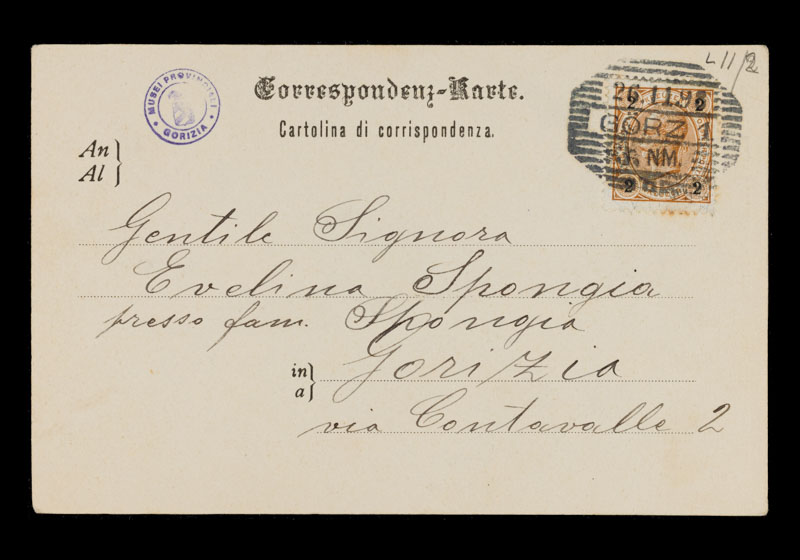 L 11/2
MUSEI PROVINCIALI
GORIZIA
Correspondenz-Karte.
Cartolina di corrispondenza.
26.11.9
GÖRZ 1
NM.
2 2
2 2
An
Al
Gentile Signora
Evelina Spongia
presso fam. Spongia
in
a
Gorizia
via Contavalle 2